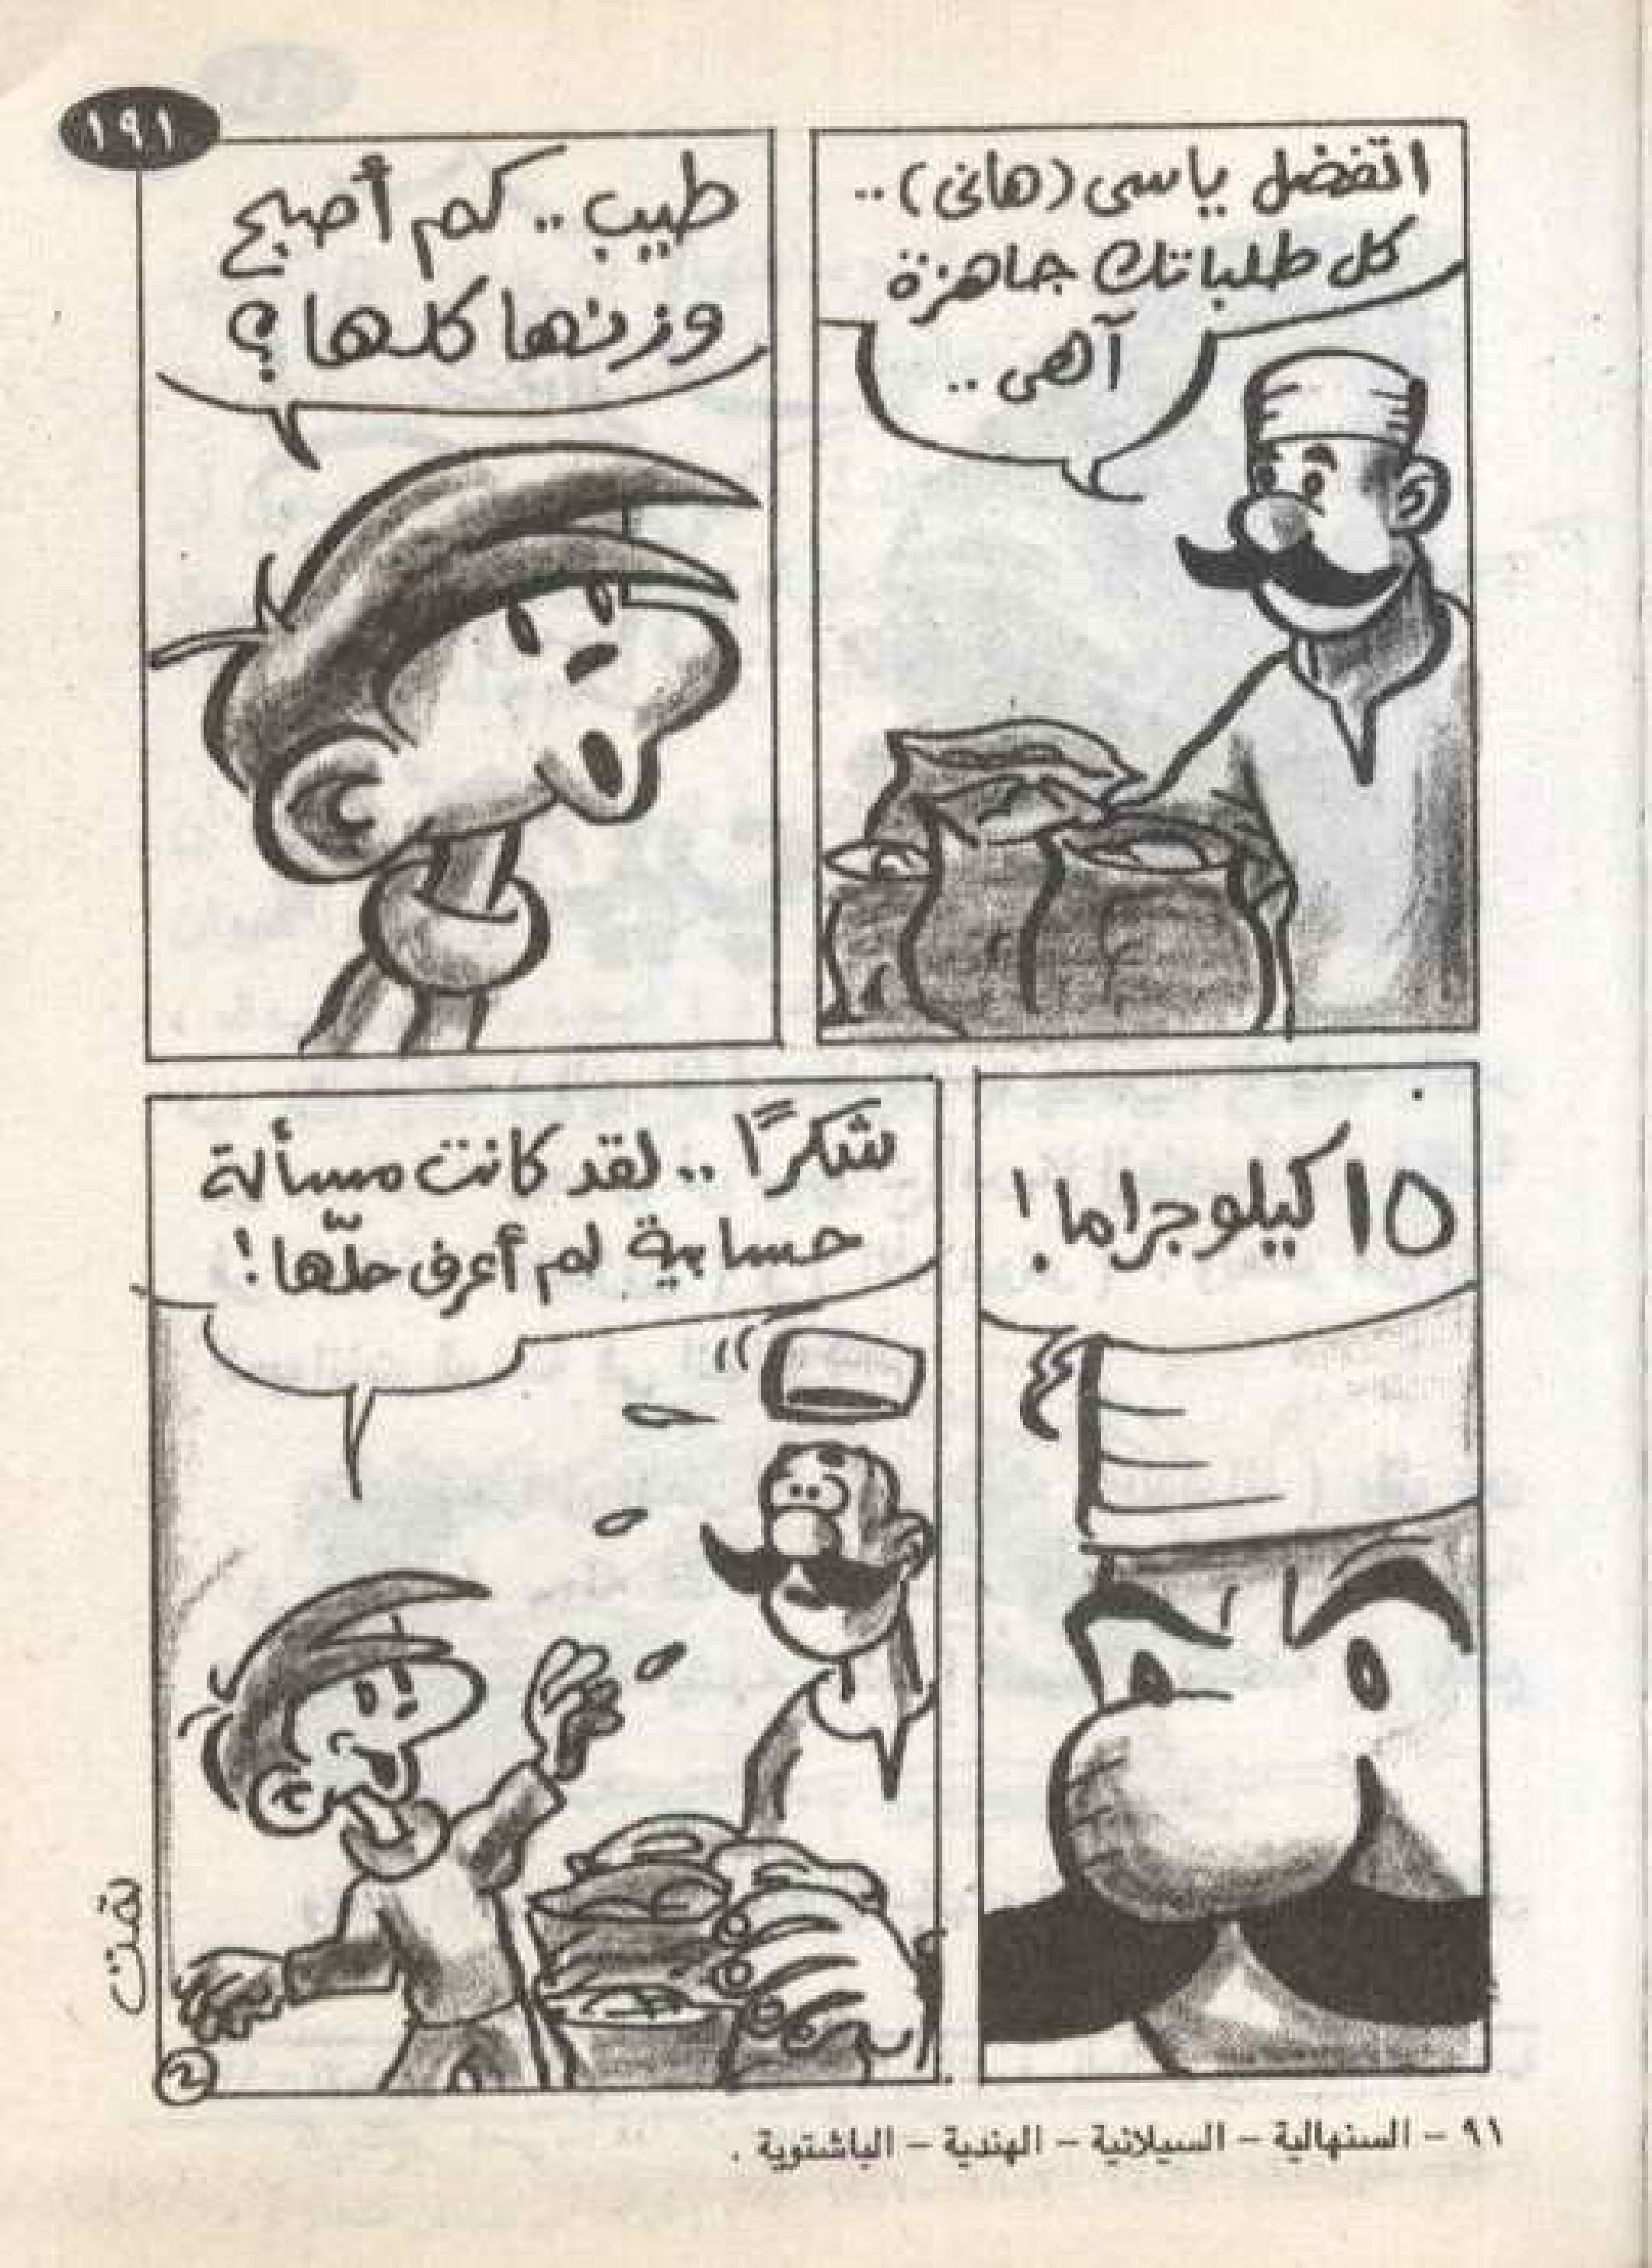 ١٩١
اتفضل ياسى (هانى)..
كل طلباتك جاهزة
آهى ..
طيب .. كم أصبح
وزنها كلها ؟
١٥ كيلوجراما !
شكرًا .. لقد كانت مسألة
حسابية لم أعرف حلّها !
تمت
٢
٩١ – السنهالية – السيلانية – الهندية – الباشتوية .